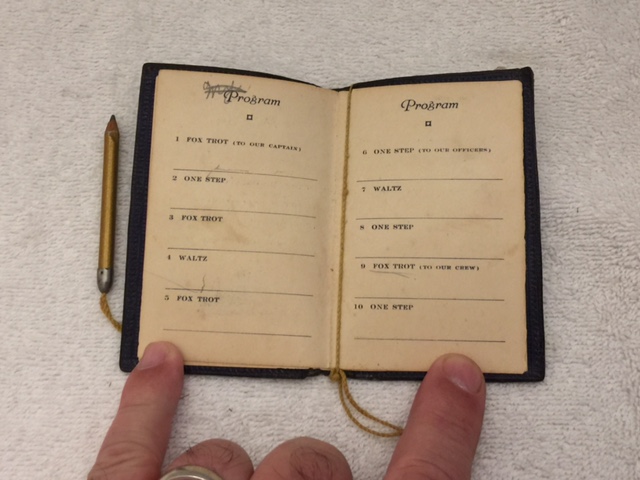 Program
1 FOX TROT (TO OUR CAPTAIN)
2 ONE STEP
3 FOX TROT
4 WALTZ
5 FOX TROT
Program
6 ONE STEP (TO OUR OFFICERS)
7 WALTZ
8 ONE STEP
9 FOX TROT (TO OUR CREW)
10 ONE STEP